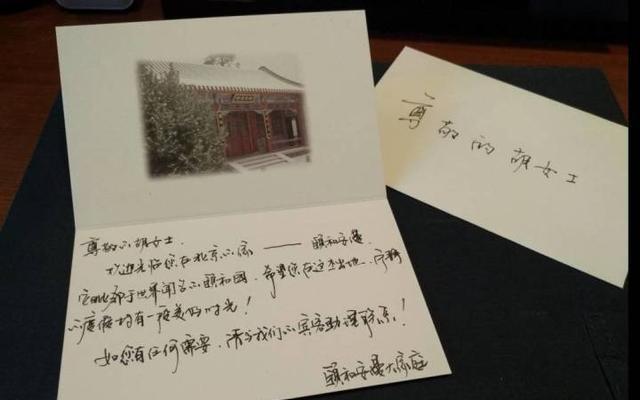 尊敬的胡女士.
欢迎光临您在北京的家——颐和安缦.
它毗邻于世界闻名的颐和园.希望您在这
的度假村有一段美好的时光!
如您有任何需要,请与我们的宾客助理联系!
颐和安缦大家庭
尊敬的胡女士